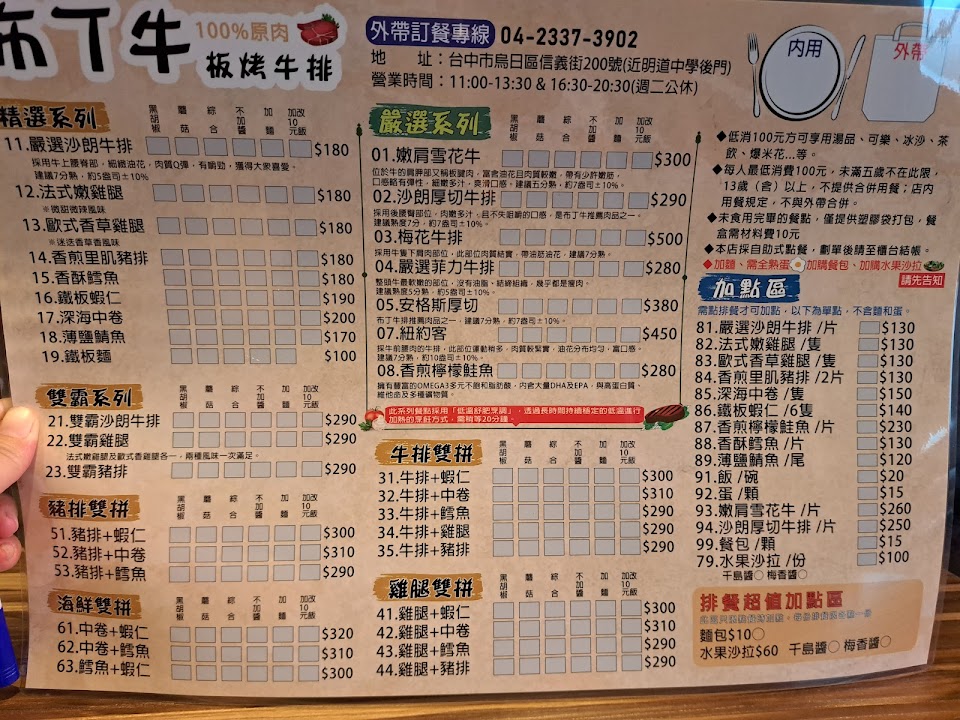 布丁牛
100%原肉
板烤牛排
外帶訂餐專線 04-2337-3902
地 址：台中市烏日區信義街200號(近明道中學後門)
營業時間：11:00-13:30 & 16:30-20:30(週二公休)
內用
外帶
精選系列
黑胡椒 蘑菇 綜合 不加醬 加麵 加10元改飯
11.嚴選沙朗牛排 $180
採用牛上腰脊部，細緻油花，肉質Q彈，有嚼勁，獲得大眾喜愛。
建議7分熟，約5盎司±10%。
12.法式嫩雞腿 $180
※微甜微辣風味
13.歐式香草雞腿 $180
※迷迭香草香風味
14.香煎里肌豬排 $180
15.香酥鱈魚 $180
16.鐵板蝦仁 $190
17.深海中卷 $200
18.薄鹽鯖魚 $170
19.鐵板麵 $100
雙霸系列
黑胡椒 蘑菇 綜合 不加醬 加麵 加10元改飯
21.雙霸沙朗牛排 $290
22.雙霸雞腿 $290
法式嫩雞腿及歐式香雞腿各一，兩種風味一次滿足。
23.雙霸豬排 $290
豬排雙拼
黑胡椒 蘑菇 綜合 不加醬 加麵 加10元改飯
51.豬排+蝦仁 $300
52.豬排+中卷 $310
53.豬排+鱈魚 $290
海鮮雙拼
黑胡椒 蘑菇 綜合 不加醬 加麵 加10元改飯
61.中卷+蝦仁 $320
62.中卷+鱈魚 $310
63.鱈魚+蝦仁 $300
嚴選系列
黑胡椒 蘑菇 綜合 不加醬 加麵 加10元改飯
01.嫩肩雪花牛 $300
位於牛的肩胛部又稱板腱肉，富含油花且肉質較嫩，帶有少許嫩筋，
口感略有彈性，細嫩多汁，爽滑口感。建議五分熟，約7盎司±10%。
02.沙朗厚切牛排 $290
採用後腰脊部位，肉嫩多汁，且不失咀嚼的口感，是布丁牛推薦肉品之一。
建議熟度7分，約7盎司±10%。
03.梅花牛排 $500
採用牛隻下肩肉部位，此部位肉質結實，帶油筋油花，建議7分熟。
04.嚴選菲力牛排 $280
整頭牛最軟嫩的部位，沒有油脂、結締組織，幾乎都是瘦肉。
建議熟度5分熟，約5盎司±10%。
05.安格斯厚切 $380
布丁牛排推薦肉品之一，建議7分熟，約7盎司±10%。
07.紐約客 $450
採牛前腰肉的牛排，此部位運動稍多，肉質較緊實，油花分布均勻，富口感。
建議7分熟，約10盎司±10%。
08.香煎檸檬鮭魚 $280
擁有豐富的OMEGA3多元不飽和脂肪酸，內含大量DHA及EPA，與高蛋白質、
維他命及多種礦物質。
此系列餐點採用「低溫舒肥烹調」，透過長時間持續穩定的低溫進行
加熱的烹飪方式，需稍等20分鐘。
牛排雙拼
黑胡椒 蘑菇 綜合 不加醬 加麵 加10元改飯
31.牛排+蝦仁 $300
32.牛排+中卷 $310
33.牛排+鱈魚 $290
34.牛排+雞腿 $290
35.牛排+豬排 $290
雞腿雙拼
黑胡椒 蘑菇 綜合 不加醬 加麵 加10元改飯
41.雞腿+蝦仁 $300
42.雞腿+中卷 $310
43.雞腿+鱈魚 $290
44.雞腿+豬排 $290
◆低消100元方可享用湯品、可樂、冰沙、茶
飲、爆米花...等。
◆每人最低消費100元，未滿五歲不在此限，
13歲（含）以上，不提供合併用餐；店內
用餐規定，不與外帶合併。
◆未食用完畢的餐點，僅提供塑膠袋打包，餐
盒需材料費10元
◆本店採自助式點餐，劃單後請至櫃台結帳。
◆加麵、需全熟蛋 加購餐包、加購水果沙拉
請先告知
加點區
需點排餐才可加點，以下為單點，不含麵和蛋。
81.嚴選沙朗牛排/片 $130
82.法式嫩雞腿/隻 $130
83.歐式香草雞腿/隻 $130
84.香煎里肌豬排/2片 $130
85.深海中卷/隻 $150
86.鐵板蝦仁/6隻 $140
87.香煎檸檬鮭魚/片 $230
88.香酥鱈魚/片 $130
89.薄鹽鯖魚/尾 $120
91.飯/碗 $20
92.蛋/顆 $15
93.嫩肩雪花牛/片 $260
94.沙朗厚切牛排/片 $250
99.餐包/顆 $15
79.水果沙拉/份 $100
千島醬○ 梅香醬○
排餐超值加點區
麵包$10○
水果沙拉$60 千島醬○ 梅香醬○